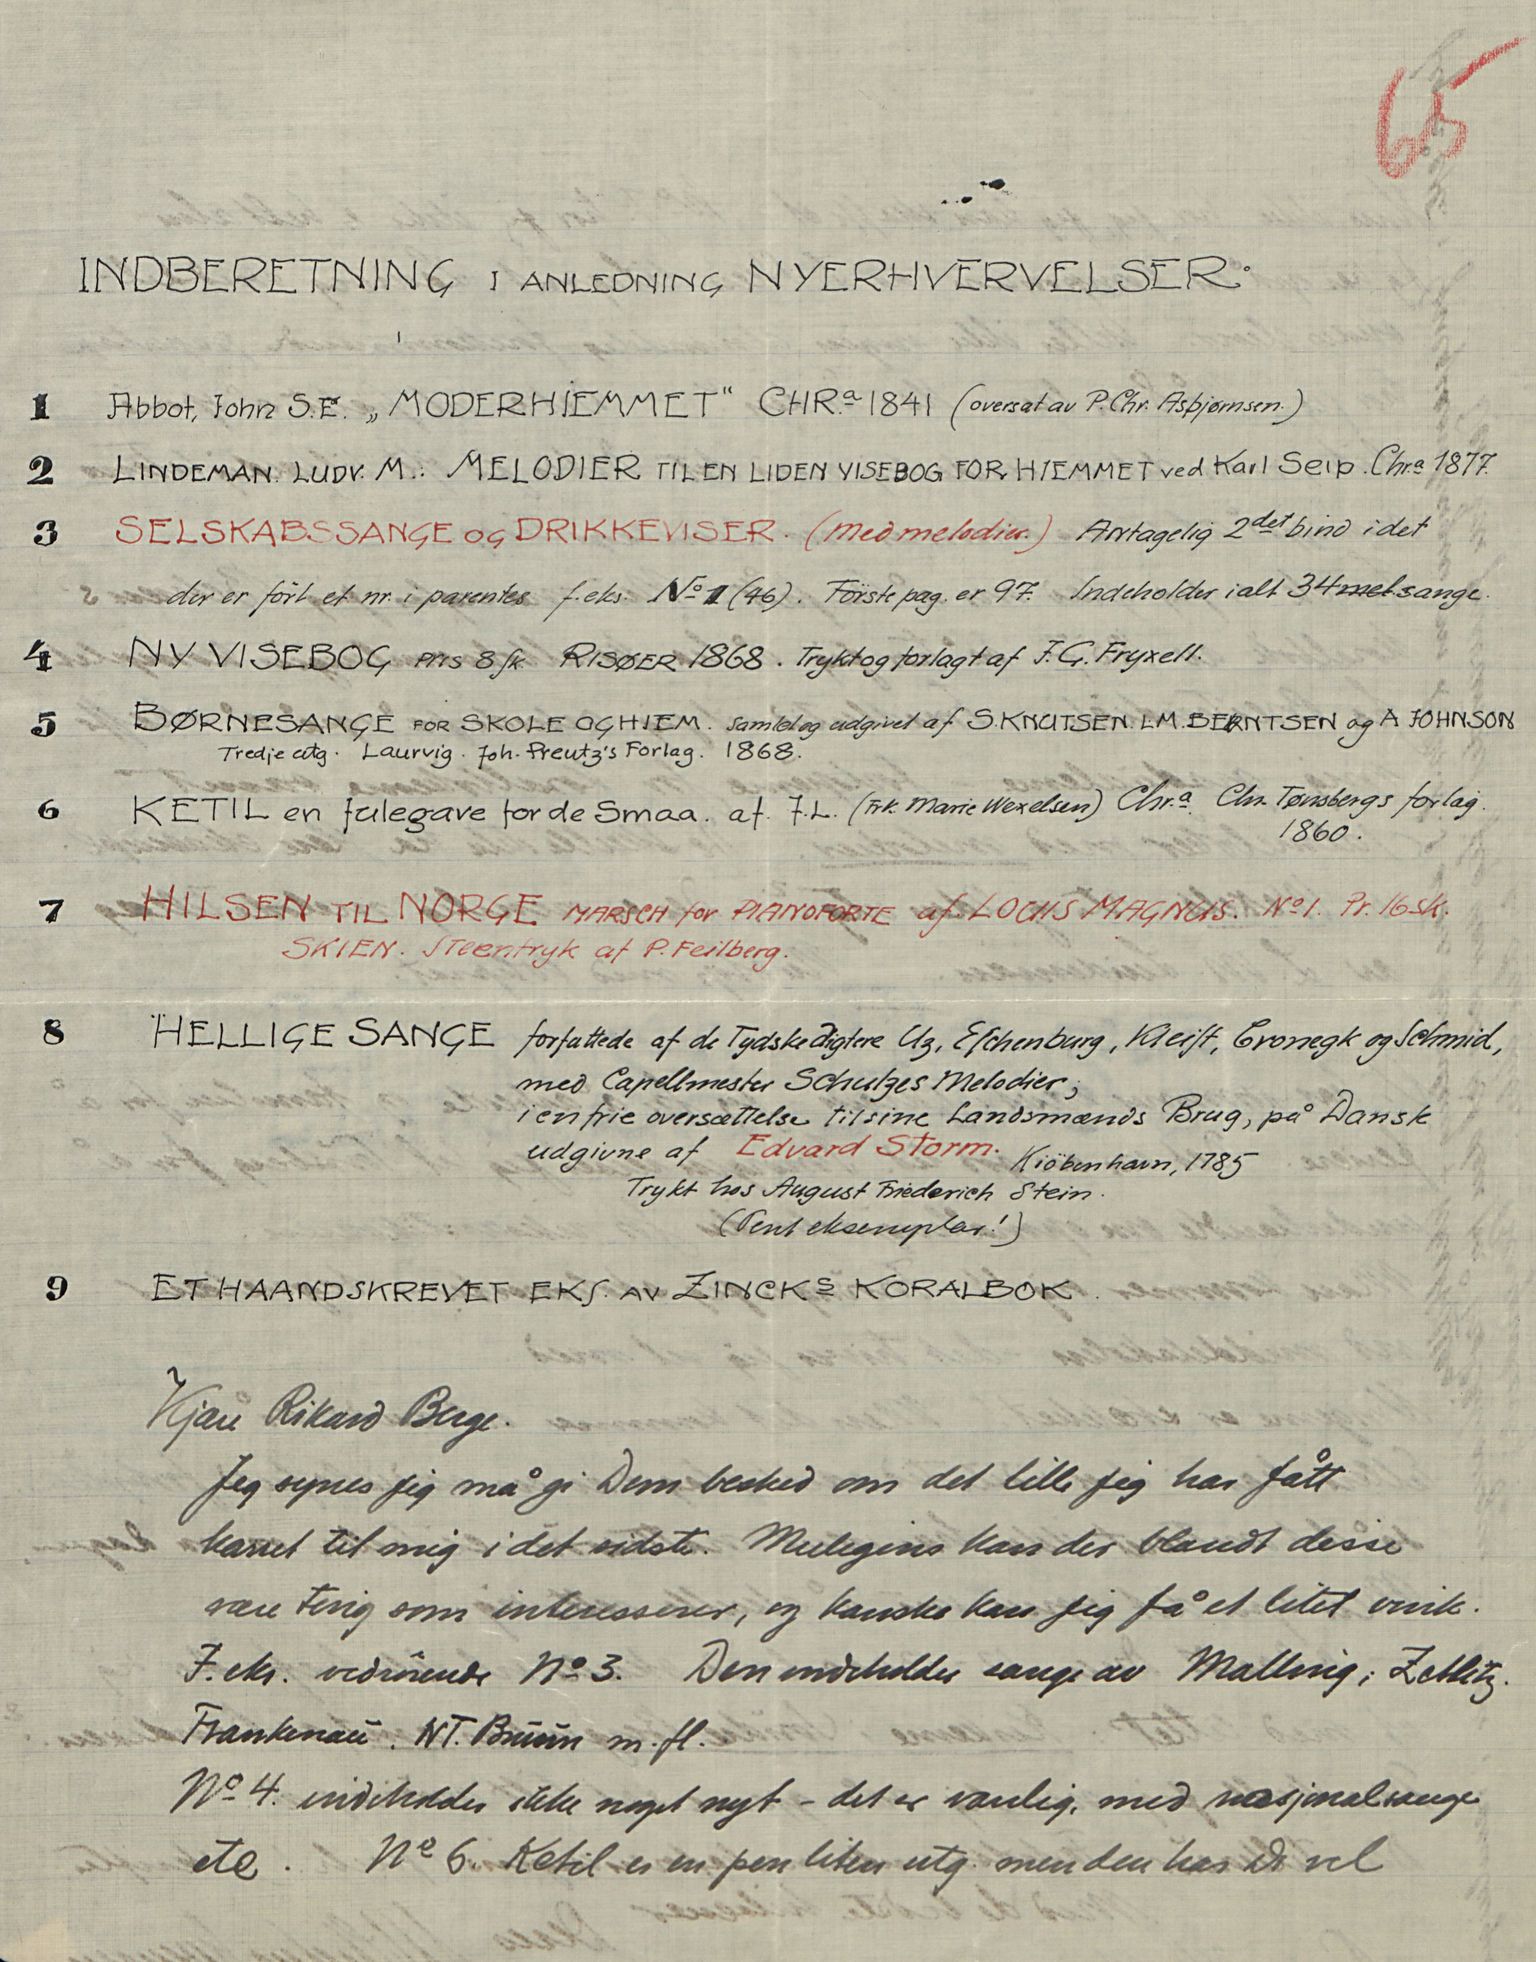 65
INDBERETNING I ANLEDNING NYERHVERVELSER:
1 Abbot, John S.E. „MODERHJEMMET" CHR.a 1841 (oversat av P. Chr. Asbjørnsen.)
2 LINDEMAN. LUDV. M.: MELODIER TIL EN LIDEN VISEBOG FOR HJEMMET ved Karl Seip. Chr.a 1877.
3 SELSKABSSANGE OG DRIKKEVISER. (Med melodier.) Antagelig 2det bind i det
der er ført et nr. i parentes f.eks. No 1 (46). Første pag. er 97. Indeholder ialt 34 sange.
4 NY VISEBOG Pris 8 sk. RISØER 1868. Trykt og forlagt af F.G. Fryxell.
5 BØRNESANGE FOR SKOLE OG HJEM. Samlet og udgivet af S. KNUTSEN. L.M. BERNTSEN og A JOHNSON
Tredje utg. Laurvig. Joh. Preutz's Forlag. 1868.
6 KETIL en Julegave for de Smaa. af. J.L. (Frk. Marie Wexelsen) Chr.a Chr. Tønsbergs forlag.
1860.
7 HILSEN TIL NORGE MARSCH for PIANOFORTE af LOUIS MAGNUS. No 1. Pr. 16 sk.
SKIEN. Steentryk af P. Feilberg.
8 HELLIGE SANGE forfattede af de Tydske digtere Uz, Eschenburg, Kleist, Cronegk og Schmid,
med Capellmester Schulzes Melodier;
i en frie oversættelse til sine Landsmænds Brug, på Dansk
udgivne af Edvard Storm. Kiöbenhavn, 1785
Trykt hos August Friederich Stein.
(Pent eksemplar!)
9 ET HAANDSKREVET EKS. AV ZINCKS KORALBOK.
Kjære Rikard Berge.
Jeg synes jeg må gi Dem besked om det lille jeg har fått
karret til mig i det sidste. Muligens kan der blandt disse
være ting som interesserer, og kanske kan jeg få et litet vink.
F. eks. vedrørende No 3. Den indeholder sange av Malling; Zetlitz.
Frankenau. NT. Bruun m. fl.
No 4. indeholder ikke noget nyt – det er vanlig. med nasjonalsange
etc. No 6. Ketil er en pen liten utg. men den har De vel